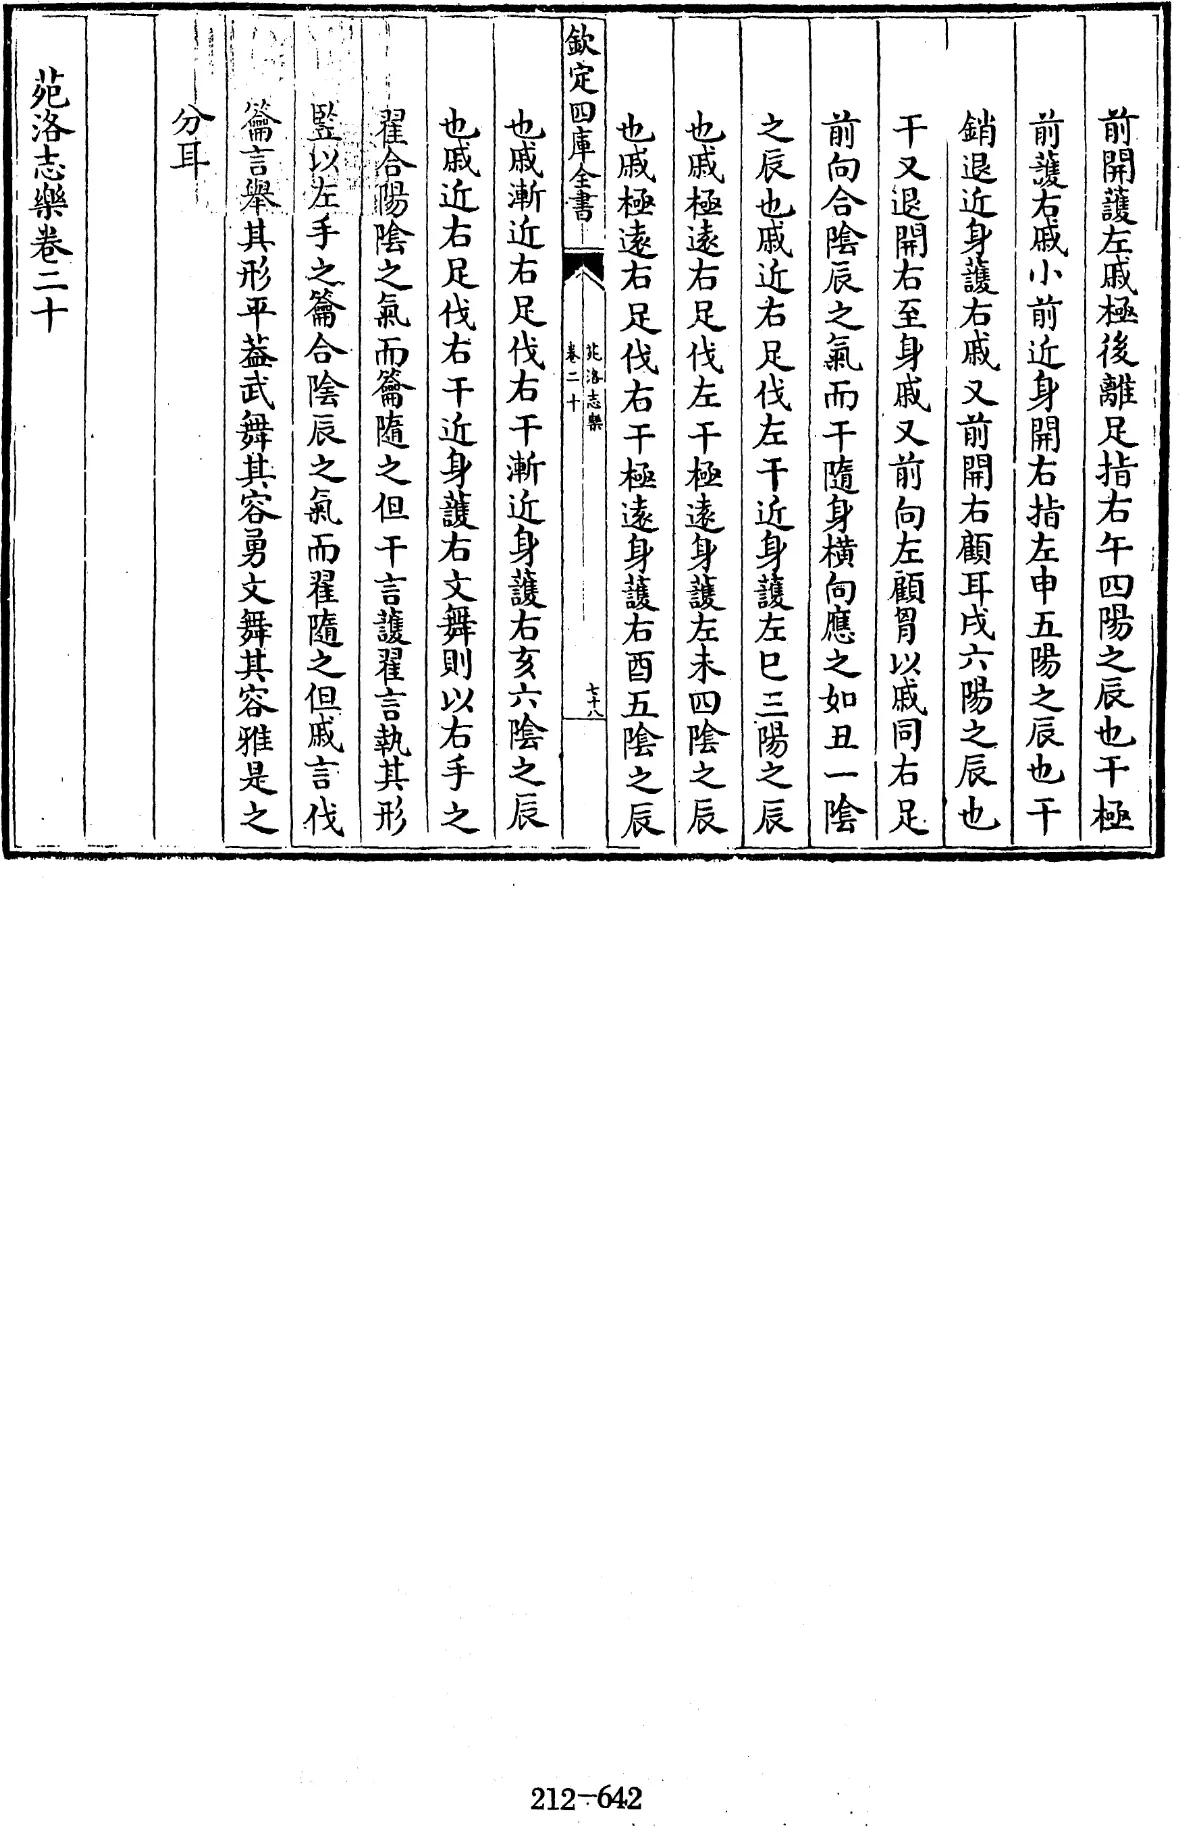 前開護左戚極後離足指右午四陽之辰也干極
前護右戚小前近身開右指左申五陽之辰也干
銷退近身護右戚又前開右顧耳戌六陽之辰也
干又退開右至身戚又前向左顧胷以戚同右足
前向合陰辰之氣而干隨身橫向應之如丑一陰
之辰也戚近右足伐左干近身護左巳三陽之辰
也戚極遠右足伐左干極遠身護左未四陰之辰
也戚極遠右足伐右干極遠身護右酉五陰之辰
欽定四庫全書
苑洛志樂
卷二十
七十八
也戚漸近右足伐右干漸近身護右亥六陰之辰
也戚近右足伐右干近身護右文舞則以右手之
翟合陽陰之氣而籥隨之但干言護翟言執其形
竪以左手之籥合陰辰之氣而翟隨之但戚言伐
籥言舉其形平葢武舞其容勇文舞其容雅是之
分耳
苑洛志樂卷二十
212-642